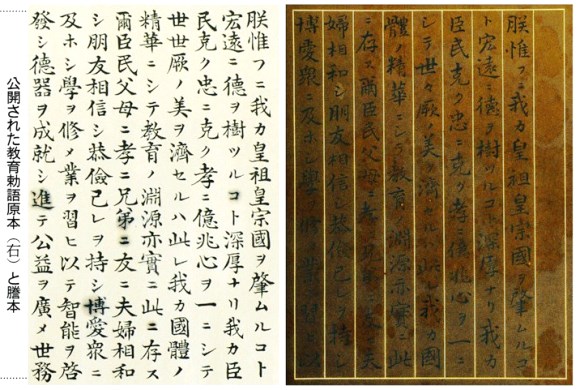 朕惟フニ我カ皇祖皇宗國ヲ肇ムルコ
ト宏遠ニ德ヲ樹ツルコト深厚ナリ我カ
臣民克ク忠ニ克ク孝ニ億兆心ヲ一ニ
シテ世々厥ノ美ヲ濟セルハ此レ我カ國
體ノ精華ニシテ教育ノ淵源亦實ニ此
ニ存ス爾臣民父母ニ孝ニ兄弟ニ友ニ夫
婦相和シ朋友相信シ恭儉己レヲ持シ
博愛衆ニ及ホシ學ヲ修メ業ヲ習ヒ以
朕惟フニ我カ皇祖皇宗國ヲ肇ムルコト
宏遠ニ德ヲ樹ツルコト深厚ナリ我カ臣
民克ク忠ニ克ク孝ニ億兆心ヲ一ニシテ
世世厥ノ美ヲ濟セルハ此レ我カ國體ノ
精華ニシテ教育ノ淵源亦實ニ此ニ存ス
爾臣民父母ニ孝ニ兄弟ニ友ニ夫婦相和
シ朋友相信シ恭儉己レヲ持シ博愛衆ニ
及ホシ學ヲ修メ業ヲ習ヒ以テ智能ヲ啓
發シ德器ヲ成就シ進テ公益ヲ廣メ世務
公開された教育勅語原本（右）と謄本